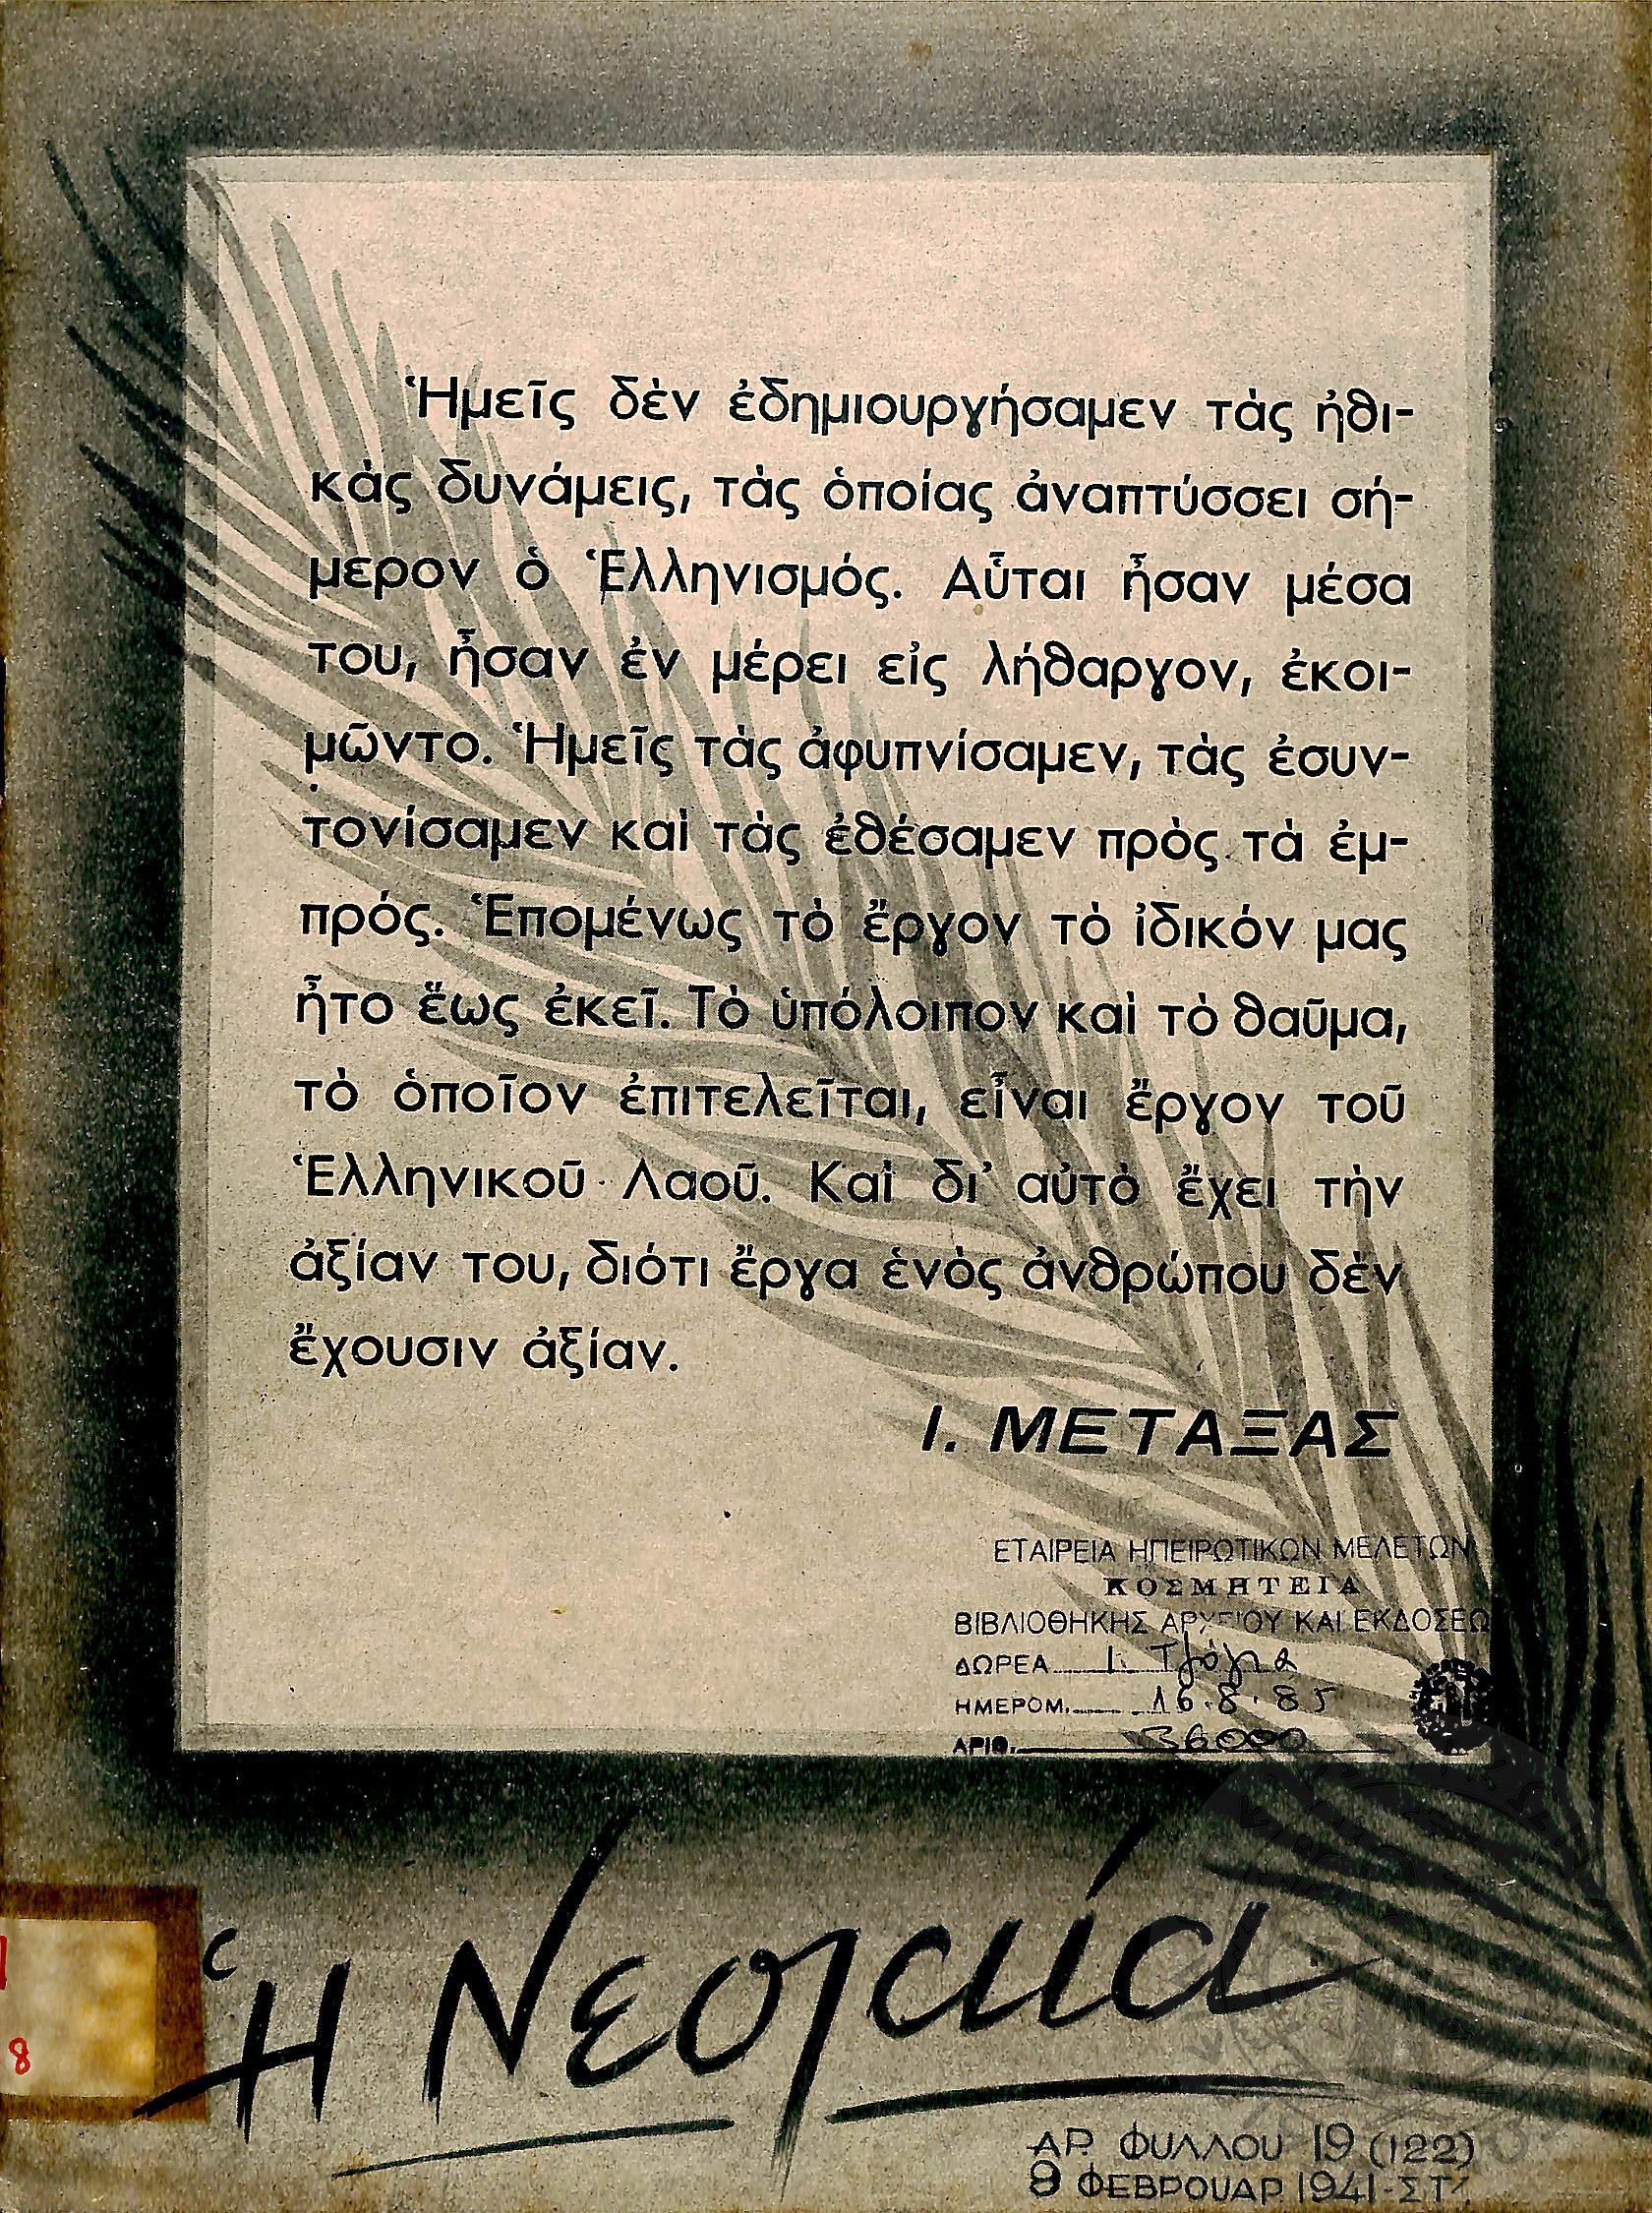 Ἡμεῖς δὲν ἐδημιουργήσαμεν τὰς ἠθι-
κὰς δυνάμεις, τὰς ὁποίας ἀναπτύσσει σή-
μερον ὁ Ἑλληνισμός. Αὗται ἦσαν μέσα
του, ἦσαν ἐν μέρει εἰς λήθαργον, ἐκοι-
μῶντο. Ἡμεῖς τὰς ἀφυπνίσαμεν, τὰς ἐσυν-
τονίσαμεν καὶ τὰς ἐθέσαμεν πρὸς τὰ ἐμ-
πρός. Ἑπομένως τὸ ἔργον τὸ ἰδικόν μας
ἦτο ἕως ἐκεῖ. Τὸ ὑπόλοιπον καὶ τὸ θαῦμα,
τὸ ὁποῖον ἐπιτελεῖται, εἶναι ἔργον τοῦ
Ἑλληνικοῦ Λαοῦ. Καὶ δι' αὐτὸ ἔχει τὴν
ἀξίαν του, διότι ἔργα ἑνὸς ἀνθρώπου δὲν
ἔχουσιν ἀξίαν.
Ι. ΜΕΤΑΞΑΣ
ΕΤΑΙΡΕΙΑ ΗΠΕΙΡΩΤΙΚΩΝ ΜΕΛΕΤΩΝ
ΚΟΣΜΗΤΕΙΑ
ΒΙΒΛΙΟΘΗΚΗΣ ΑΡΧΕΙΟΥ ΚΑΙ ΕΚΔΟΣΕΩ
ΔΩΡΕΑ
ΗΜΕΡΟΜ. 16.8.85
ΑΡΙΘ. 36000
Ἡ Νεολαία
8
ΑΡ. ΦΥΛΛΟΥ 19 (122)
8 ΦΕΒΡΟΥΑΡ. 1941-ΣΤ'.